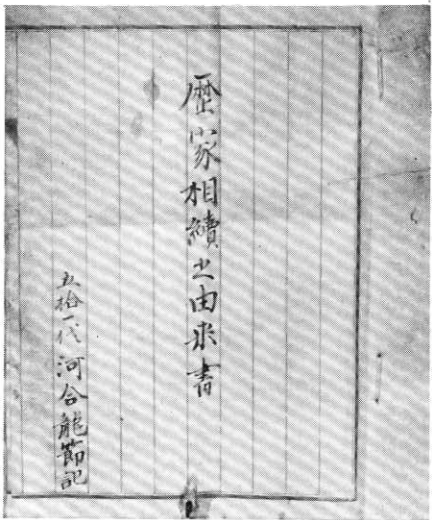 歴家相續之由来書
五拾一代河合龍節記